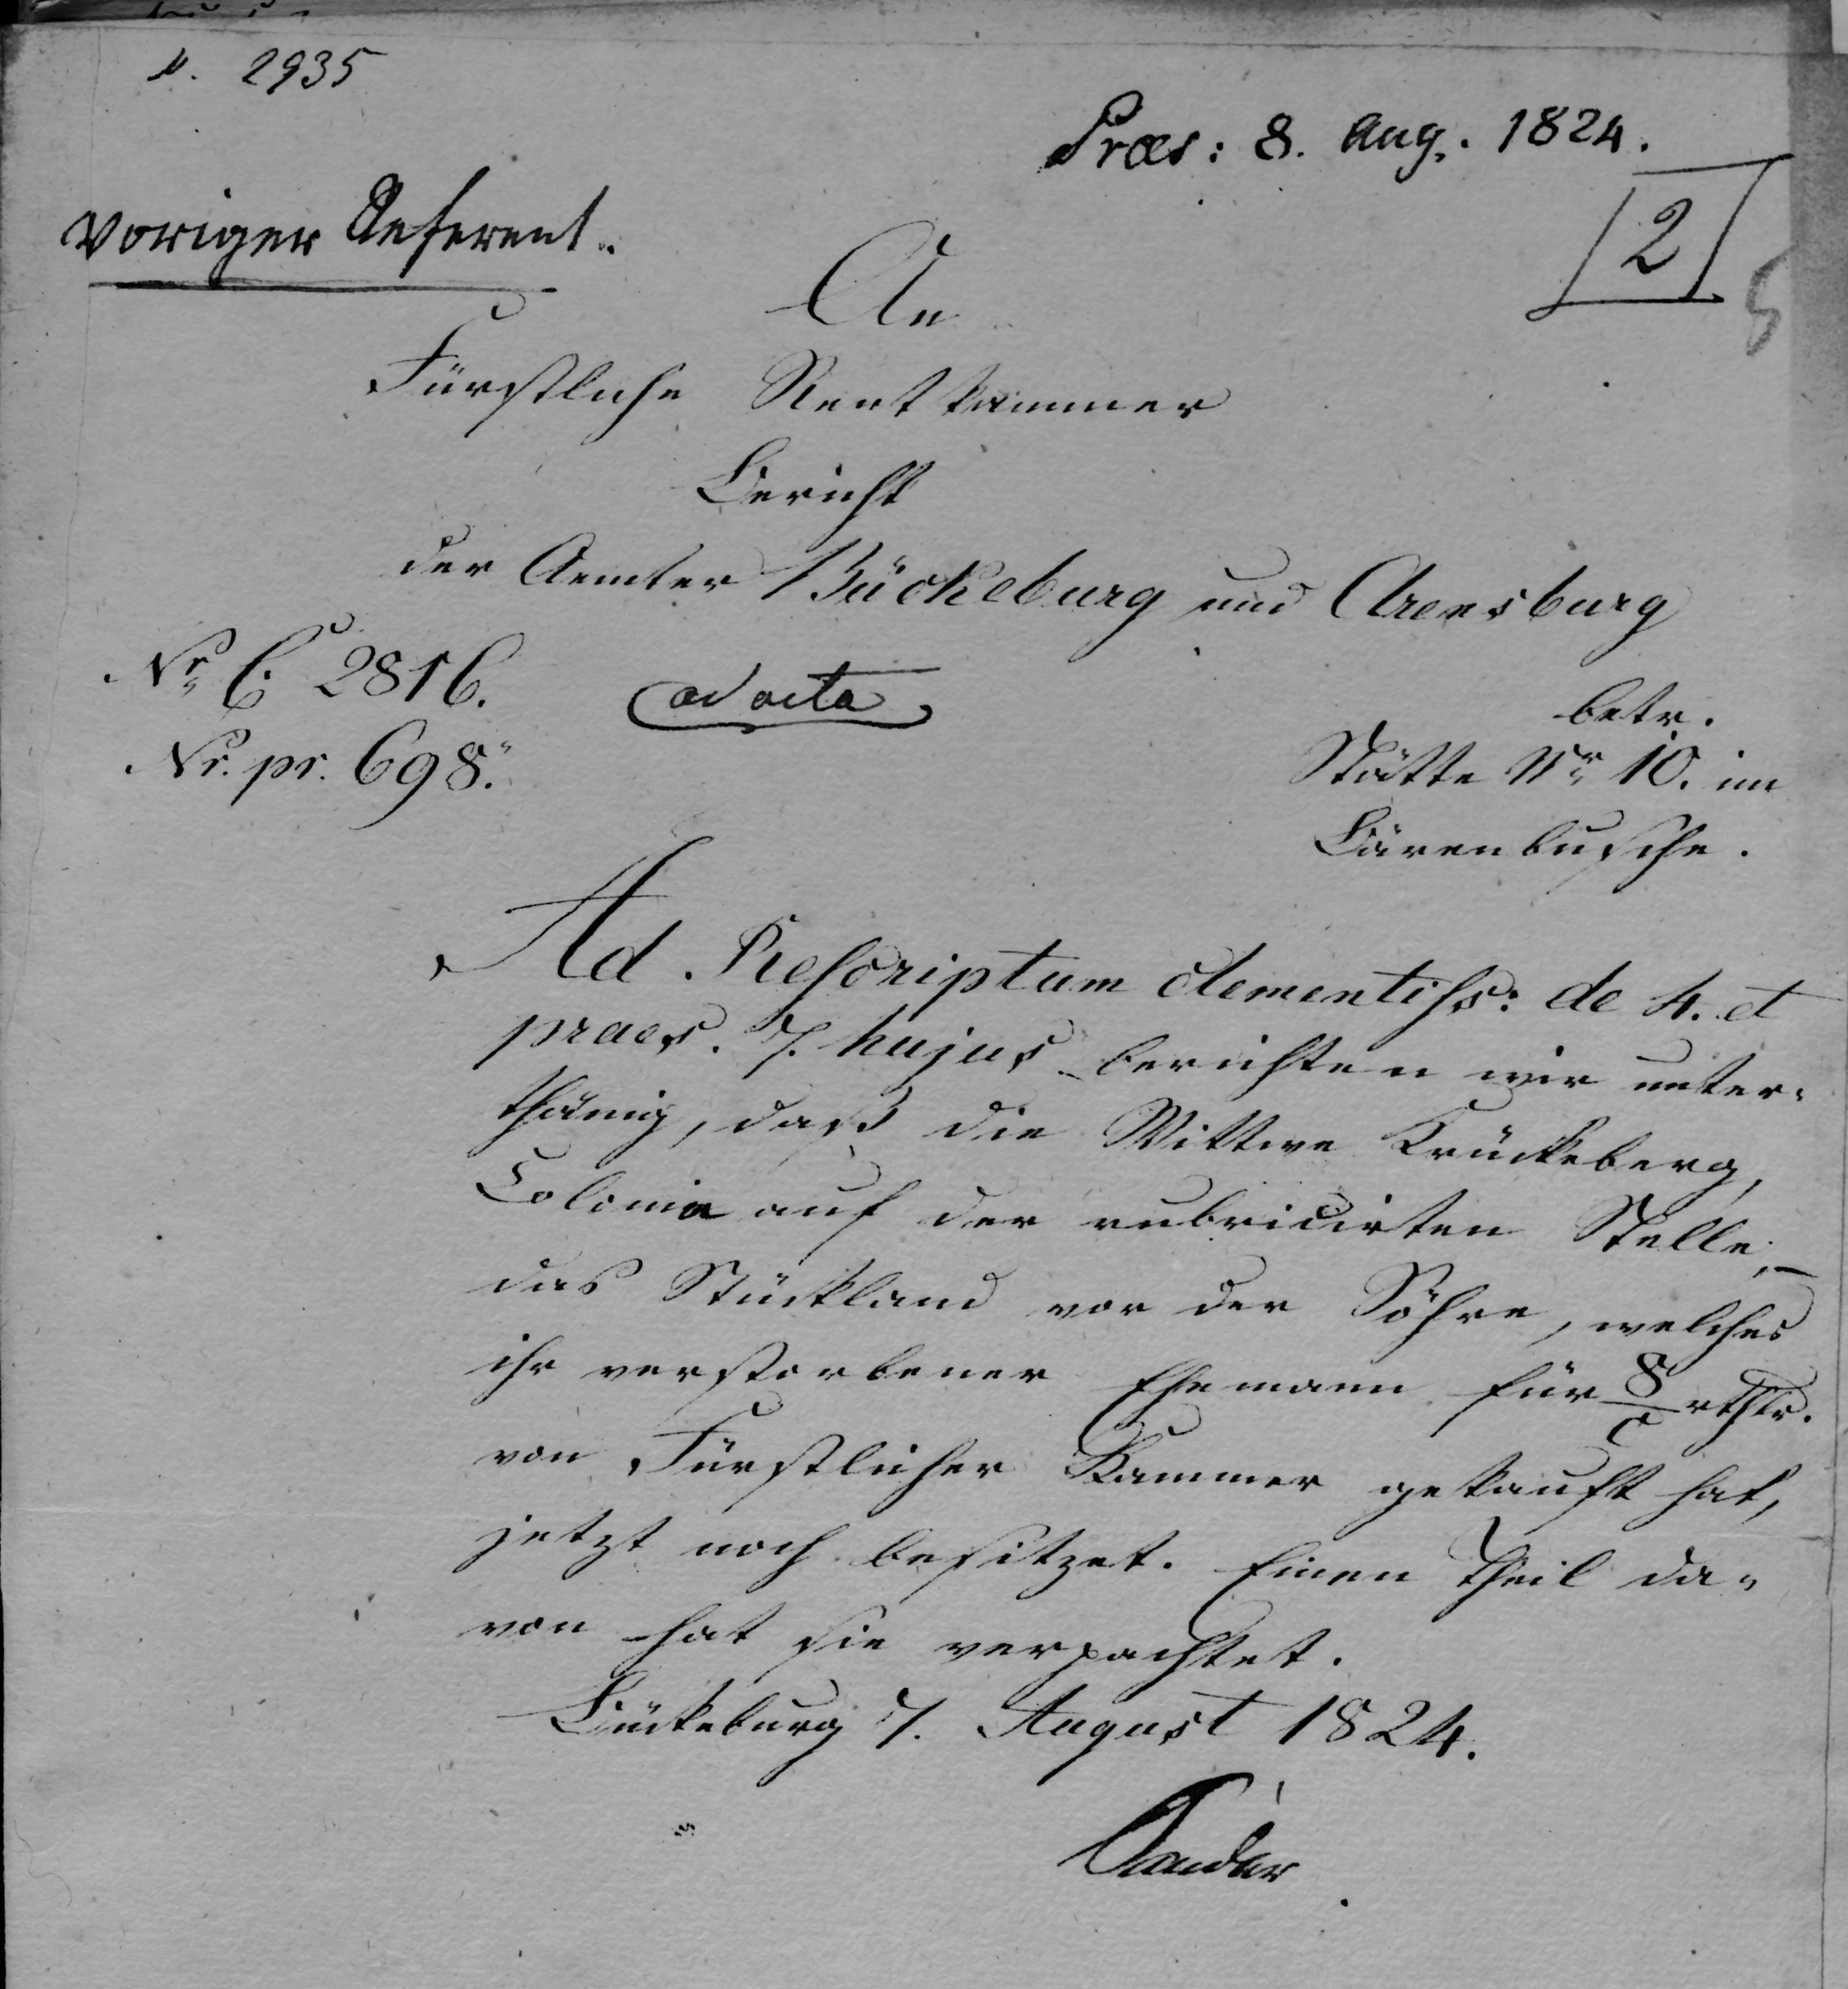 N. 2935
Præs: 8. Aug. 1824.
voriger Referent.
2
An
Fürstliche Rentkammer
Bericht
der Aemter Bückeburg und Arensburg
Nr. C. 2816.
ad acta
betr.
Nr. pr. 698.
Stätte Nr. 10. im
Bärenbusche.
Ad Rescriptum clementiss: de 4. et
praes. 7. hujus berichten wir unter-
thänig, daß die Wittwe Krückeberg,
Colonia auf der rubricirten Stelle,
das Stückland vor der Söhre, welches
ihr verstorbener Ehemann für rthlr.
von Fürstlicher Kammer gekauft hat,
jetzt noch besitzet. Einen Theil da-
von hat sie verpachtet.
Bückeburg 7. August 1824.